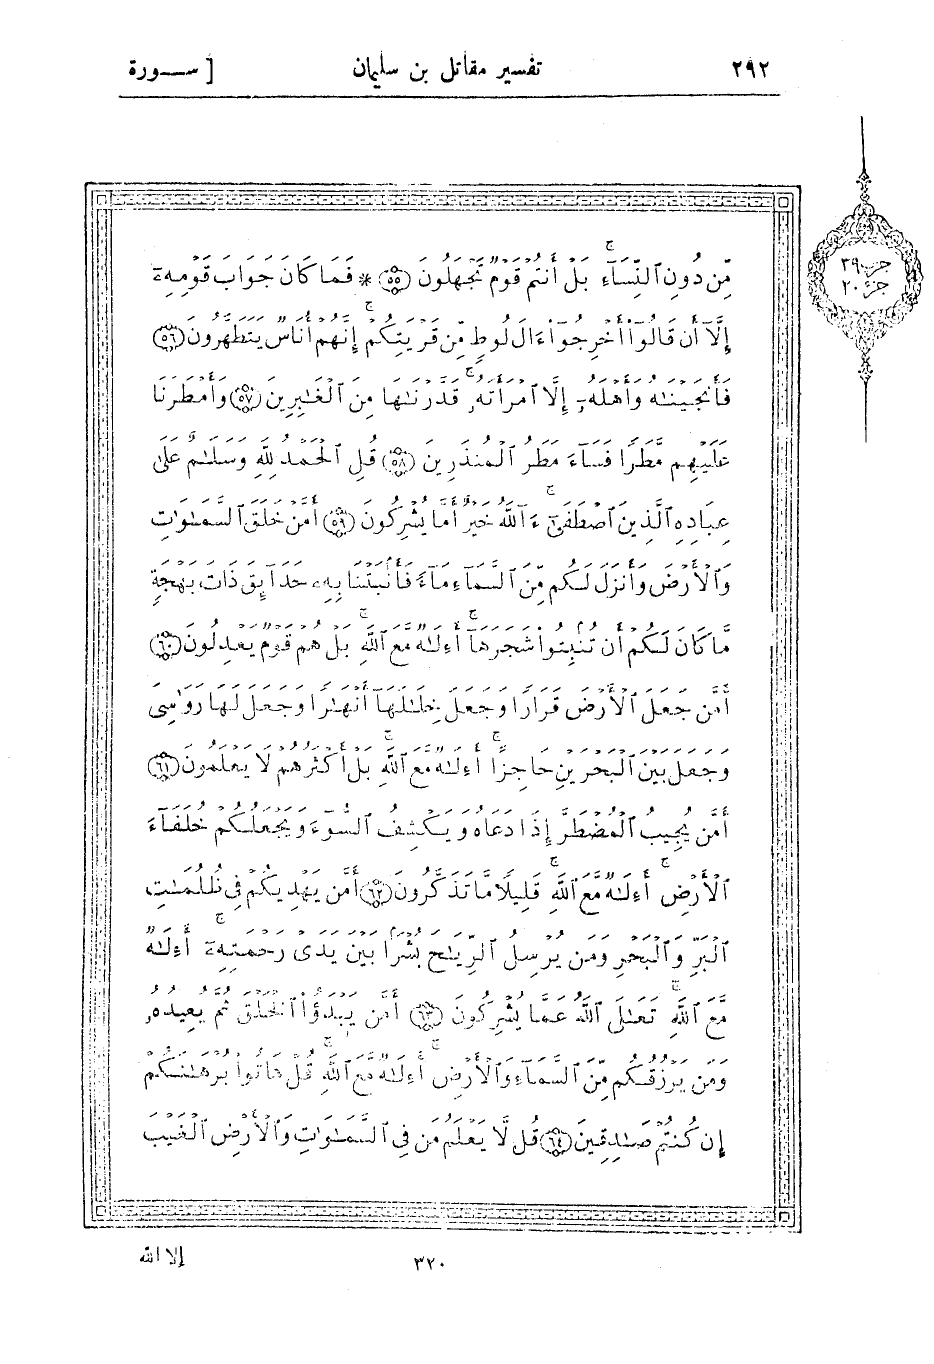 ٢٩٢ تفسير مقاتل بن سليمان [ ســـورة
حزب ٣٩
جزء ٢٠
مِّن دُونِ ٱلنِّسَآءِ ۚ بَلْ أَنتُمْ قَوْمٌ تَجْهَلُونَ ﴿٥٥﴾ * فَمَا كَانَ جَوَابَ قَوْمِهِۦٓ
إِلَّآ أَن قَالُوٓا۟ أَخْرِجُوٓا۟ ءَالَ لُوطٍ مِّن قَرْيَتِكُمْ ۚ إِنَّهُمْ أُنَاسٌ يَتَطَهَّرُونَ ﴿٥٦﴾
فَأَنجَيْنَـٰهُ وَأَهْلَهُۥٓ إِلَّا ٱمْرَأَتَهُۥ ۚ قَدَّرْنَـٰهَا مِنَ ٱلْغَـٰبِرِينَ ﴿٥٧﴾ وَأَمْطَرْنَا
عَلَيْهِم مَّطَرًا فَسَآءَ مَطَرُ ٱلْمُنذَرِينَ ﴿٥٨﴾ قُلِ ٱلْحَمْدُ لِلَّهِ وَسَلَـٰمٌ عَلَىٰ
عِبَادِهِ ٱلَّذِينَ ٱصْطَفَىٰٓ ۚ ءَآللَّهُ خَيْرٌ أَمَّا يُشْرِكُونَ ﴿٥٩﴾ أَمَّنْ خَلَقَ ٱلسَّمَـٰوَٰتِ
وَٱلْأَرْضَ وَأَنزَلَ لَكُم مِّنَ ٱلسَّمَآءِ مَآءً فَأَنۢبَتْنَا بِهِۦ حَدَآئِقَ ذَاتَ بَهْجَةٍ
مَّا كَانَ لَكُمْ أَن تُنۢبِتُوا۟ شَجَرَهَآ ۚ أَءِلَـٰهٌ مَّعَ ٱللَّهِ ۚ بَلْ هُمْ قَوْمٌ يَعْدِلُونَ ﴿٦٠﴾
أَمَّن جَعَلَ ٱلْأَرْضَ قَرَارًا وَجَعَلَ خِلَـٰلَهَآ أَنْهَـٰرًا وَجَعَلَ لَهَا رَوَٰسِىَ
وَجَعَلَ بَيْنَ ٱلْبَحْرَيْنِ حَاجِزًا ۚ أَءِلَـٰهٌ مَّعَ ٱللَّهِ ۚ بَلْ أَكْثَرُهُمْ لَا يَعْلَمُونَ ﴿٦١﴾
أَمَّن يُجِيبُ ٱلْمُضْطَرَّ إِذَا دَعَاهُ وَيَكْشِفُ ٱلسُّوٓءَ وَيَجْعَلُكُمْ خُلَفَآءَ
ٱلْأَرْضِ ۚ أَءِلَـٰهٌ مَّعَ ٱللَّهِ ۚ قَلِيلًا مَّا تَذَكَّرُونَ ﴿٦٢﴾ أَمَّن يَهْدِيكُمْ فِى ظُلُمَـٰتِ
ٱلْبَرِّ وَٱلْبَحْرِ وَمَن يُرْسِلُ ٱلرِّيَـٰحَ بُشْرًۢا بَيْنَ يَدَىْ رَحْمَتِهِۦٓ ۚ أَءِلَـٰهٌ
مَّعَ ٱللَّهِ ۚ تَعَـٰلَى ٱللَّهُ عَمَّا يُشْرِكُونَ ﴿٦٣﴾ أَمَّن يَبْدَؤُا۟ ٱلْخَلْقَ ثُمَّ يُعِيدُهُۥ
وَمَن يَرْزُقُكُم مِّنَ ٱلسَّمَآءِ وَٱلْأَرْضِ ۚ أَءِلَـٰهٌ مَّعَ ٱللَّهِ ۚ قُلْ هَاتُوا۟ بُرْهَـٰنَكُمْ
إِن كُنتُمْ صَـٰدِقِينَ ﴿٦٤﴾ قُل لَّا يَعْلَمُ مَن فِى ٱلسَّمَـٰوَٰتِ وَٱلْأَرْضِ ٱلْغَيْبَ
إلا الله
٣٢٠